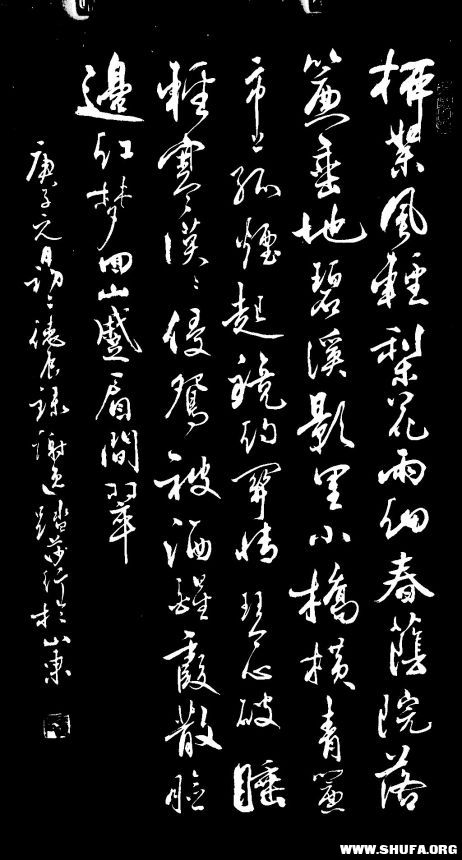 柳絮風輕梨花雨細春蔭院落
簾垂地碧溪影里小橋橫青簾
市上孤煙起鏡約關情琴心破睡
輕寒漠漠侵鴛被酒醒霞散臉
邊紅梦回山蹙眉間翠
庚子元月初二德錄謝逸踏莎行於山東
WWW.SHUFA.ORG